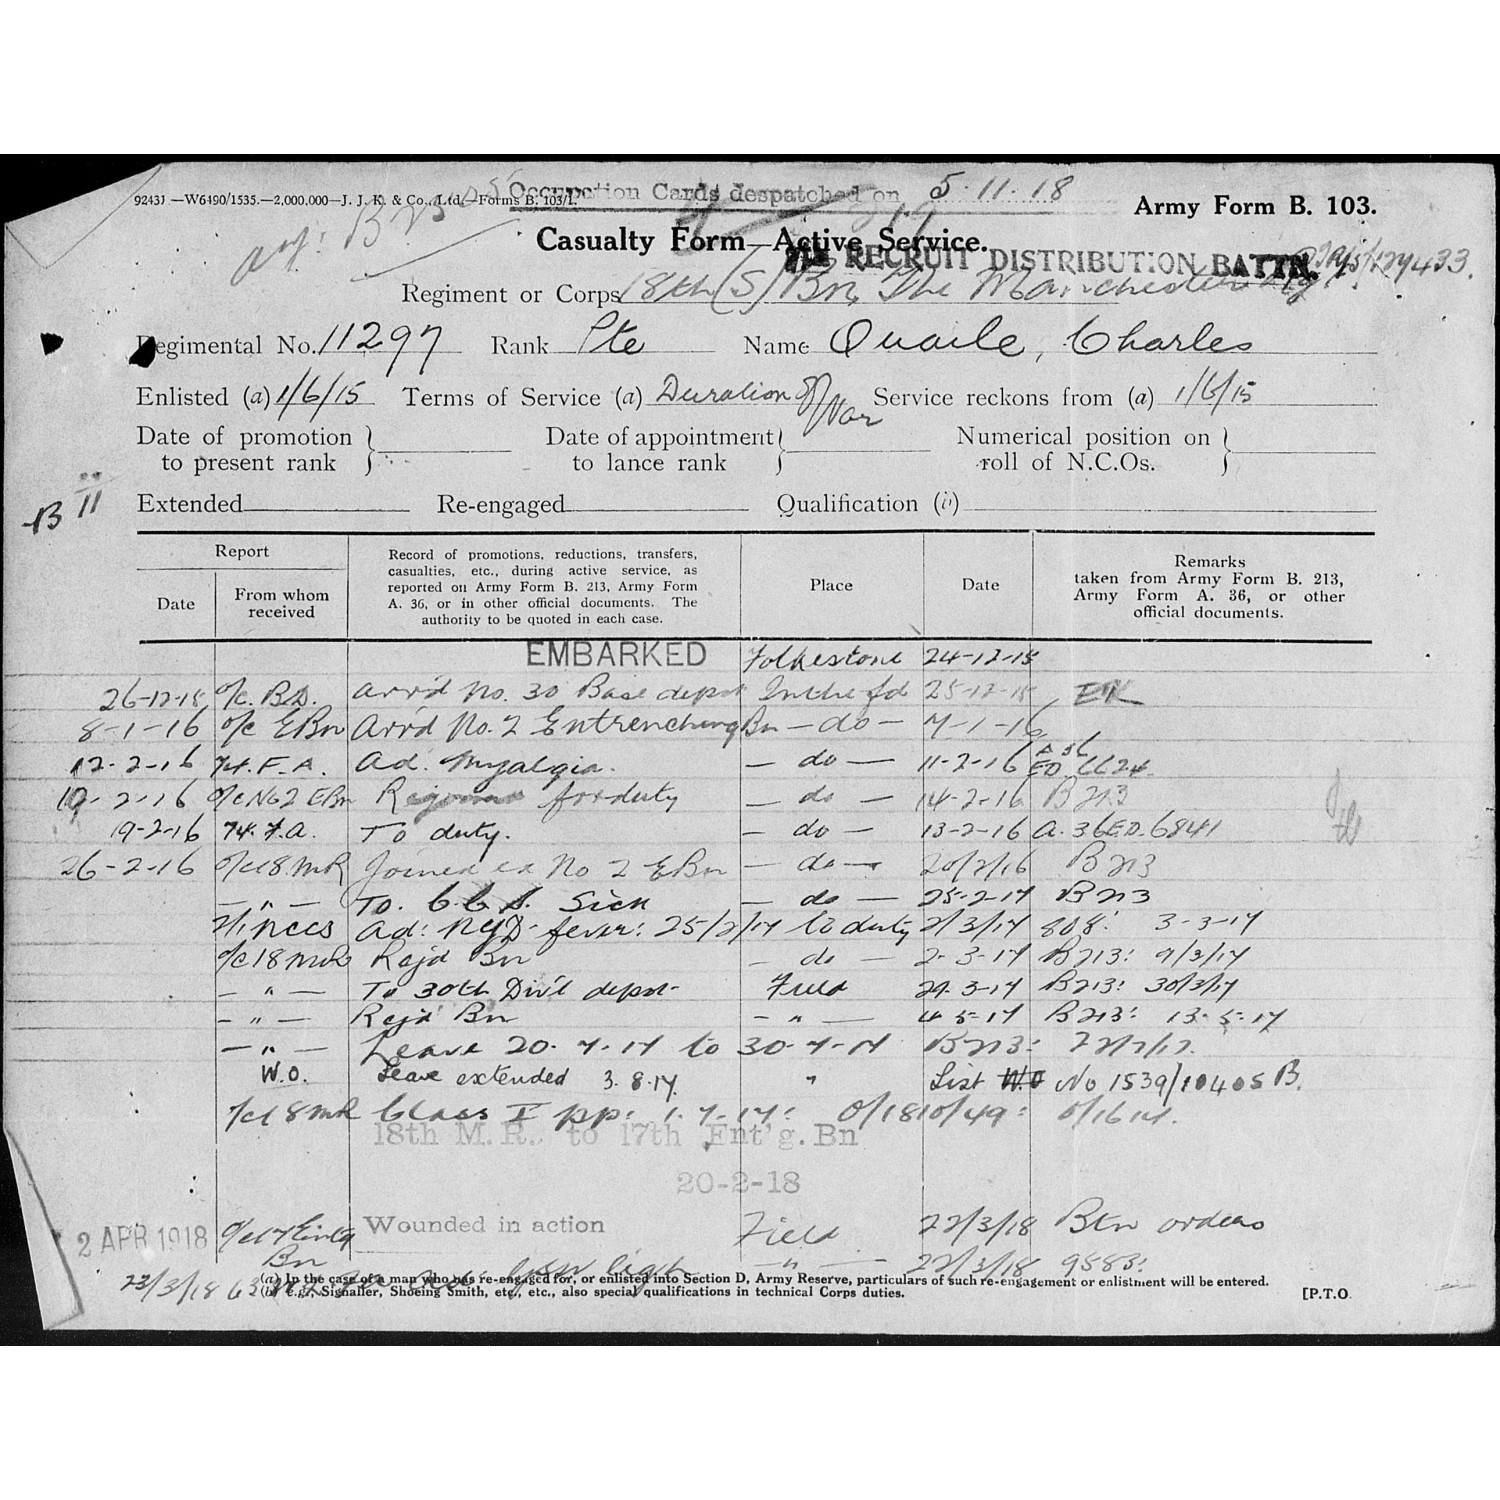 92431 —W6490/1535.—2,000,000—J. J. K. & Co., Ltd.—Forms B. 103/1.
Occupation Cards despatched on 5.11.18
Army Form B. 103.
Casualty Form—Active Service.
RECRUIT DISTRIBUTION BATTN.
Regiment or Corps 18th (S) Bn. The Manchester
Regimental No. 11297 Rank Pte Name Quaile, Charles
Enlisted (a) 1/6/15 Terms of Service (a) Duration of War Service reckons from (a) 1/6/15
Date of promotion to present rank } Date of appointment to lance rank } Numerical position on roll of N.C.Os. }
B II
Extended Re-engaged Qualification (b)
Report
Date
From whom received
Record of promotions, reductions, transfers,
casualties, etc., during active service, as
reported on Army Form B. 213, Army Form
A. 36, or in other official documents. The
authority to be quoted in each case.
Place
Date
Remarks
taken from Army Form B. 213,
Army Form A. 36, or other
official documents.
EMBARKED Folkestone 24-12-15
26-12-15 O/c. B.D. Arr'd No. 30 Base depot In the fd 25-12-15
8-1-16 O/c E Bn Arr'd No. 2 Entrenching Bn — do — 7-1-16
12-2-16 74. F. A. Ad. Myalgia. — do — 11-2-16 A 36 ED 6624
19-2-16 O/c No 2 E Bn for duty — do — 14-2-16 B 213
19-2-16 74. F. A. To duty. — do — 13-2-16 A. 36 E.D. 6841
26-2-16 O/c 18 M R Joined ex No 2 E Bn — do — 20/2/16 B 213
— " — To. C.C.S. Sick — do — 25-2-17 B 213
2/1 NCCS Ad: NYD- fever: 25/2/17 to duty 2/3/17 808: 3-3-17
O/c 18 M R Rejd Bn — do — 2-3-17 B213: 9/3/17
— " — To 30th Div'l depot — Field 29-3-17 B213: 30/3/17
— " — Rejd Bn — " — 4-5-17 B213: 13-5-17
— " — Leave 20-7-17 to 30-7-17 B213: 22/7/17.
W.O. Leave extended 3.8.17. " List W.O No 1539/10405 B.
O/c 18 MR Class I pp: 1.7.17: O/1810/49: O/1614.
18th M.R. to 17th Ent'g. Bn
20-2-18
2 APR 1918 O/c 17 Entg Bn Wounded in action Field 22/3/18 Btn orders
23/3/18 63 " — 22/3/18 9583:
(a) In the case of a man who has re-engaged for, or enlisted into Section D, Army Reserve, particulars of such re-engagement or enlistment will be entered.
(b) e.g., Signaller, Shoeing Smith, etc., etc., also special qualifications in technical Corps duties.
[P.T.O.